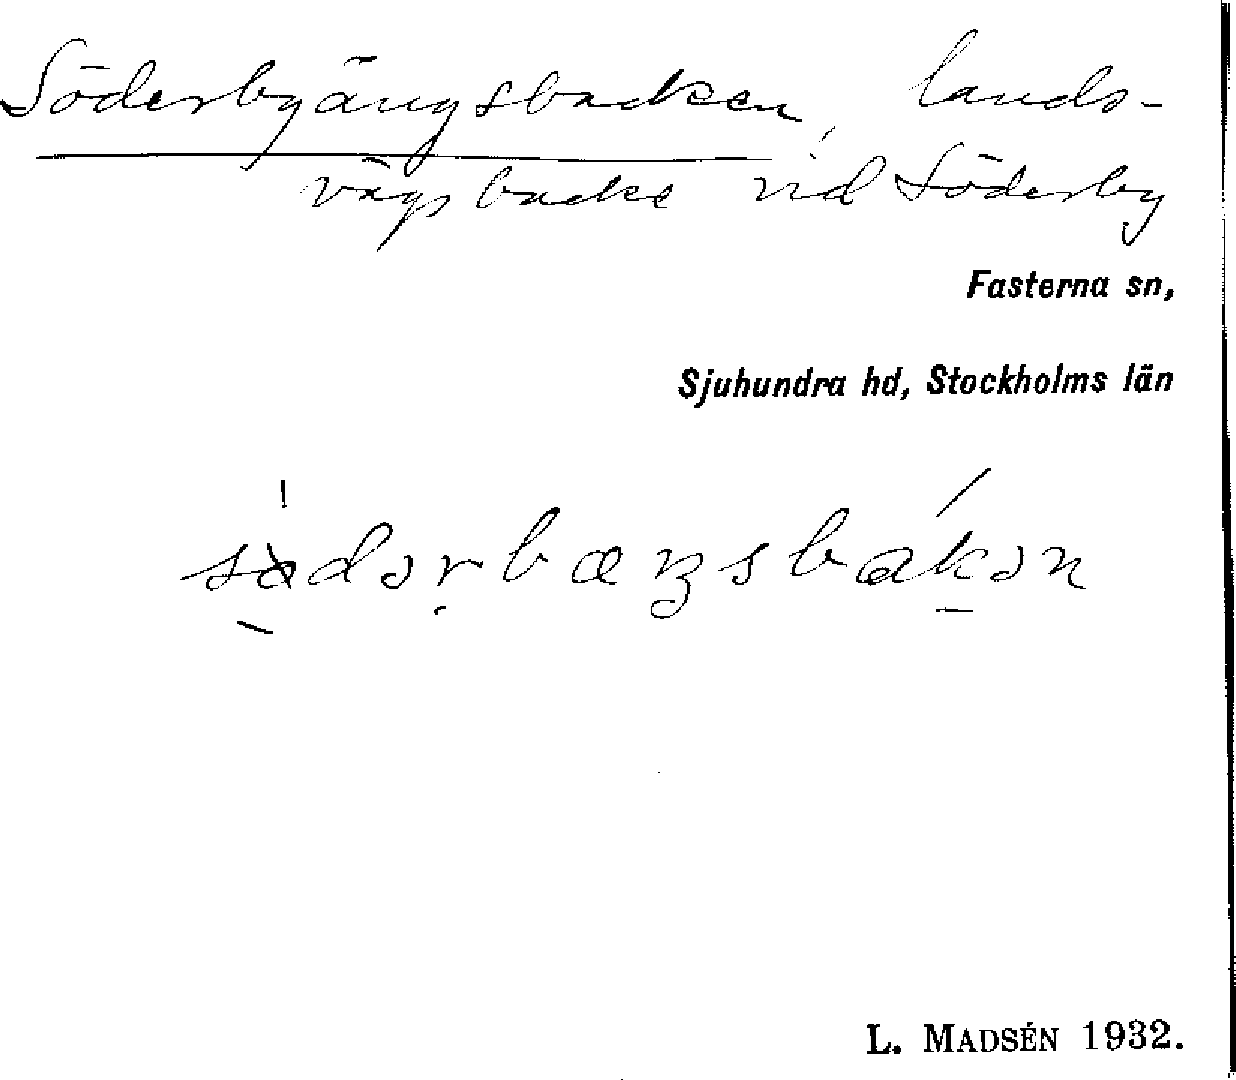 Söderbyängsbacken, lands-
vägsbacke vid Söderby
Fasterna sn,
Sjuhundra hd, Stockholms län
L. MADSÉN 1932.